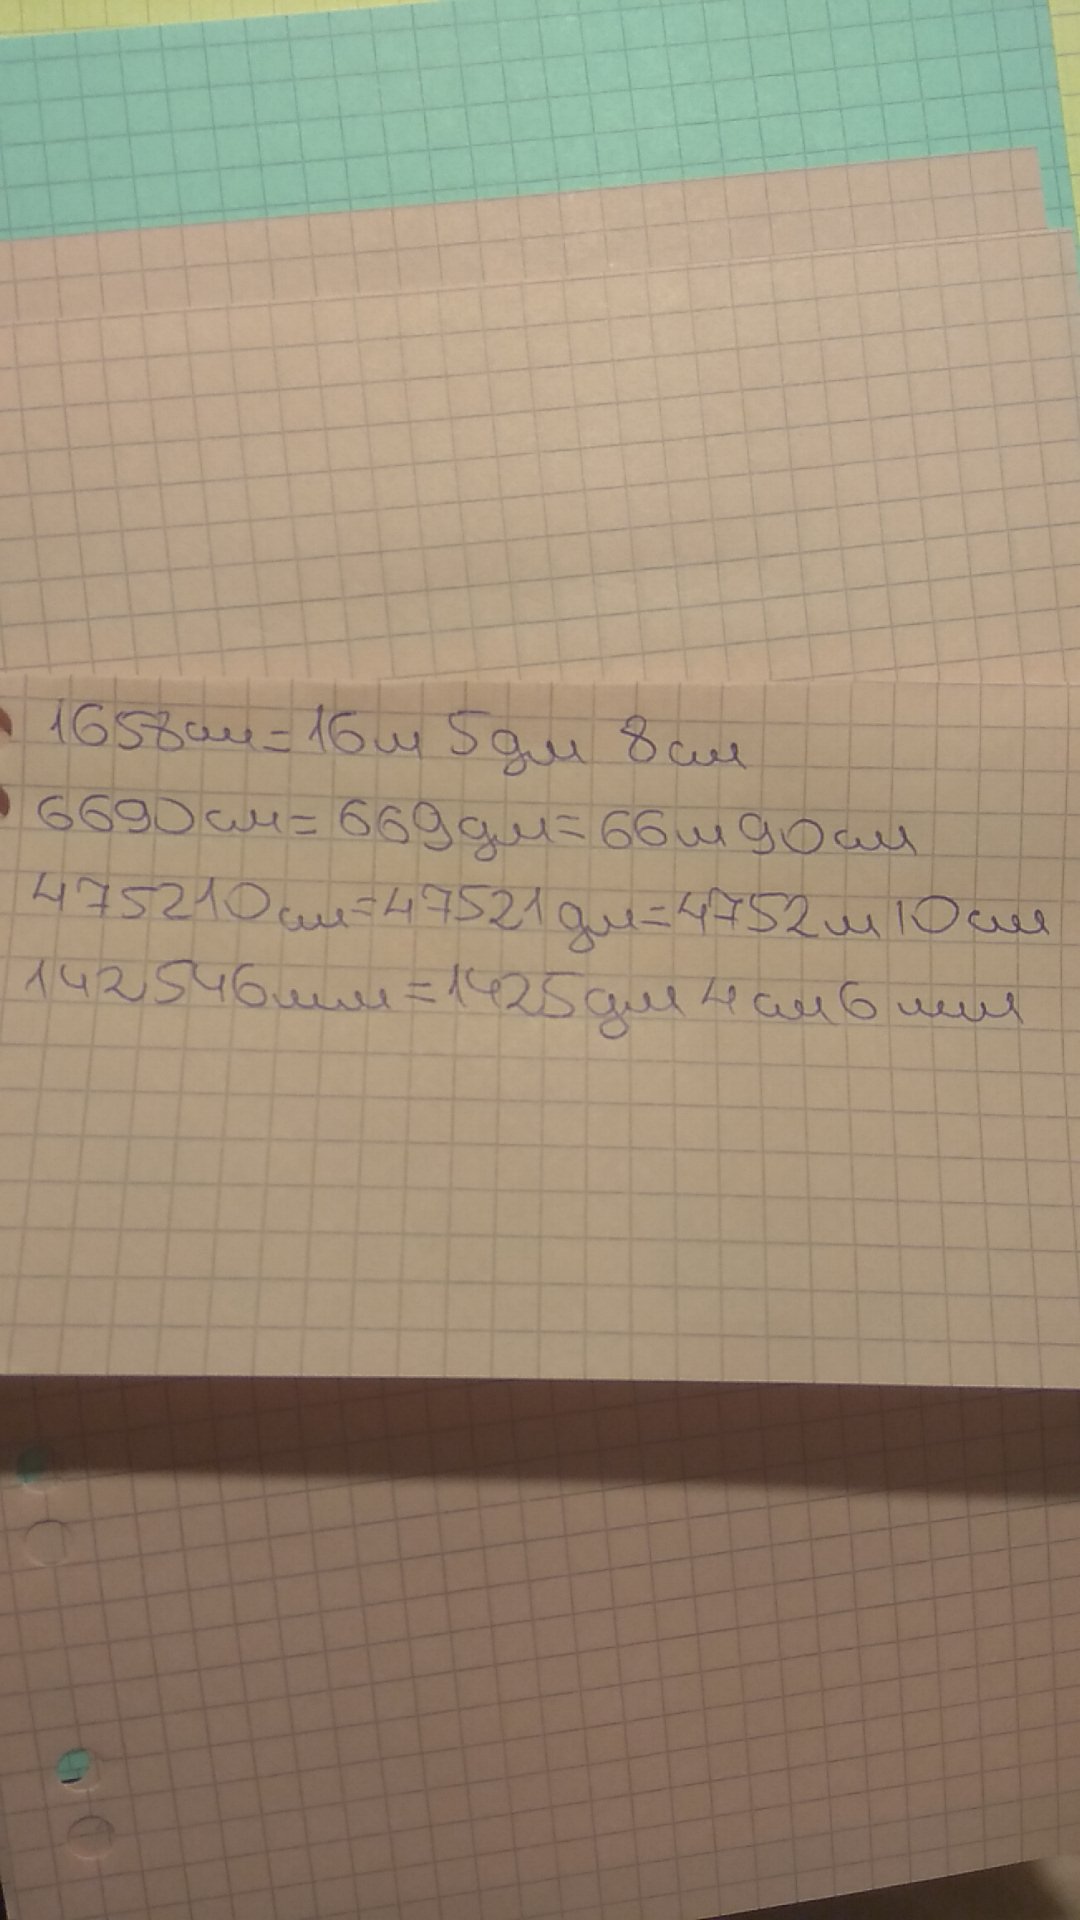 1658см=16м 5дм 8см
6690см=669дм=66м90см
475210см=47521дм=4752м10см
142546мм=1425дм4см6мм